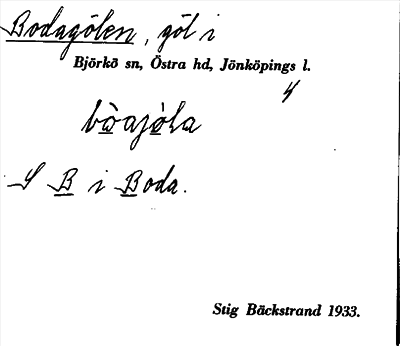 Bodagölen, göl i
Björkö sn, Östra hd, Jönköpings l.
4
bòajòla
S B i Boda.
Stig Bäckstrand 1933.